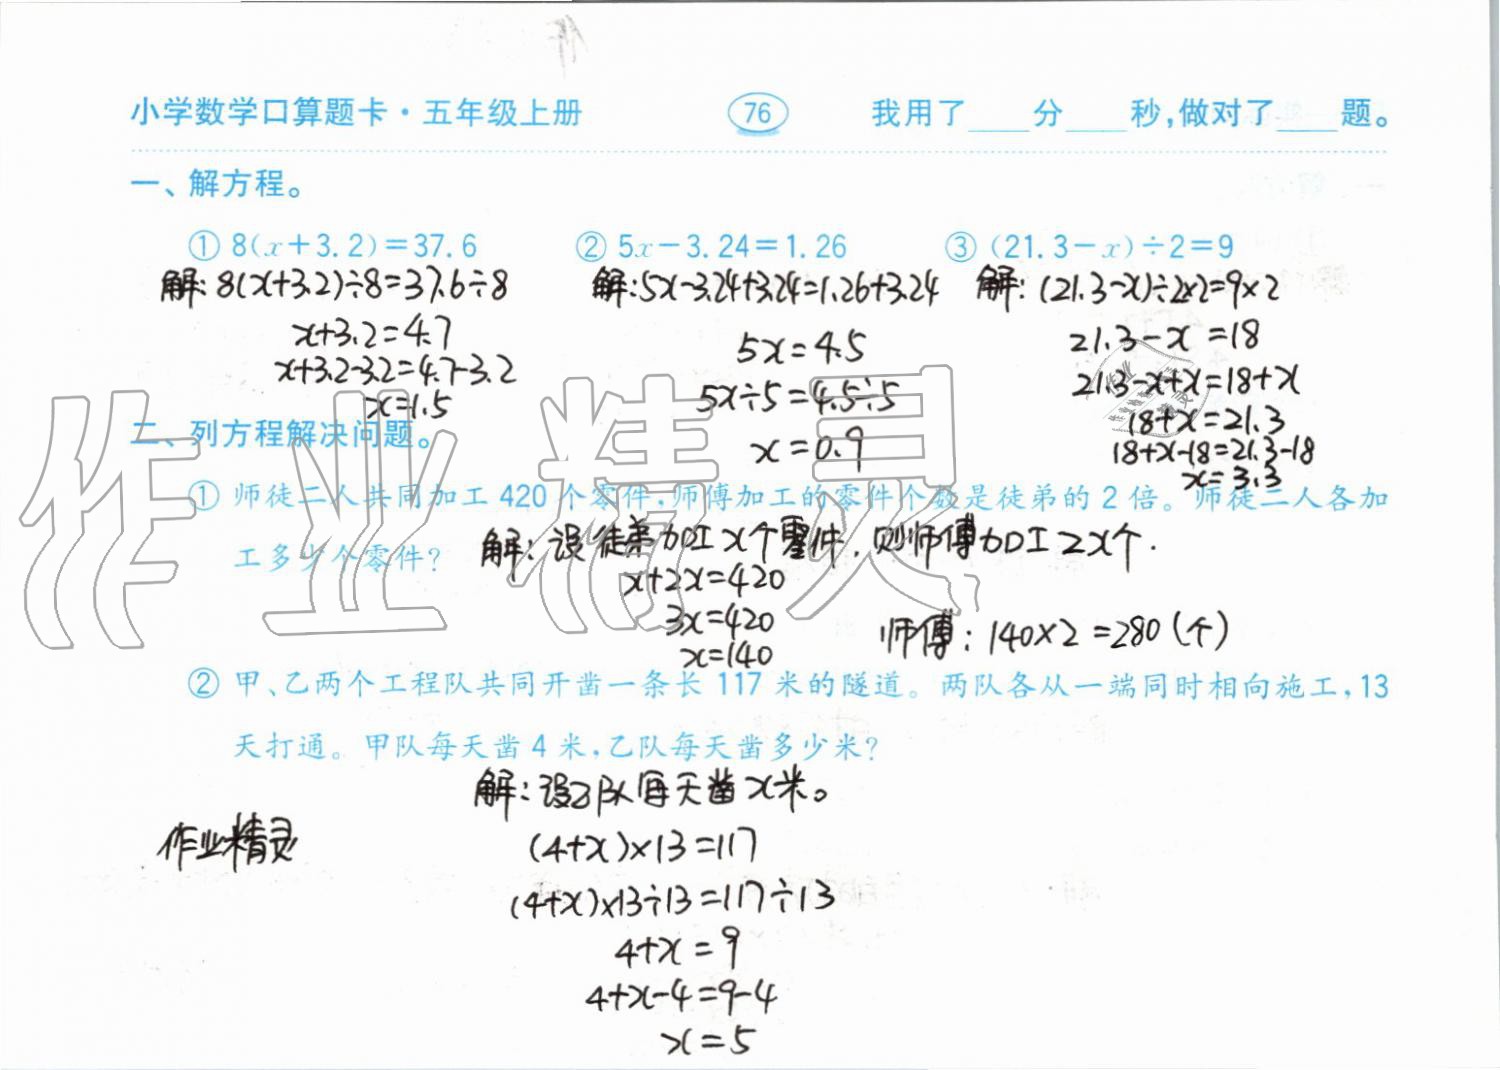 小学数学口算题卡·五年级上册 76 我用了____分____秒,做对了____题。
一、解方程。
① 8(x+3.2)=37.6 ② 5x-3.24=1.26 ③ (21.3-x)÷2=9
解:8(x+3.2)÷8=37.6÷8 解:5x-3.24+3.24=1.26+3.24 解:(21.3-x)÷2×2=9×2
x+3.2=4.7 5x=4.5 21.3-x=18
x+3.2-3.2=4.7-3.2 5x÷5=4.5÷5 21.3-x+x=18+x
x=1.5 x=0.9 18+x=21.3
18+x-18=21.3-18
x=3.3
二、列方程解决问题。
① 师徒二人共同加工 420 个零件,师傅加工的零件个数是徒弟的 2 倍。师徒二人各加
工多少个零件?
解:设徒弟加工x个零件,则师傅加工2x个.
x+2x=420
3x=420
x=140 师傅:140×2=280(个)
② 甲、乙两个工程队共同开凿一条长 117 米的隧道。两队各从一端同时相向施工,13
天打通。甲队每天凿 4 米,乙队每天凿多少米?
解:设乙队每天凿x米。
(4+x)×13=117
(4+x)×13÷13=117÷13
4+x=9
4+x-4=9-4
x=5
作业精灵
作业精灵